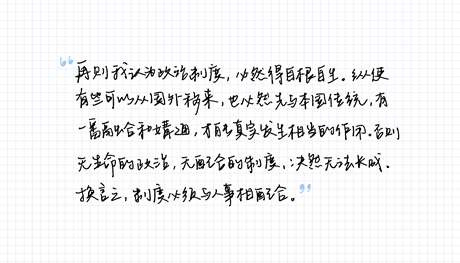 “再则我认为政治制度，必然得自根自生。纵使
有些可以从国外移来，也必然先与本国传统，有
一番融合和媾通，才能真实发生相当的作用。否则
无生命的政治，无配合的制度，决然无法长成。
换言之，制度必须与人事相配合。”